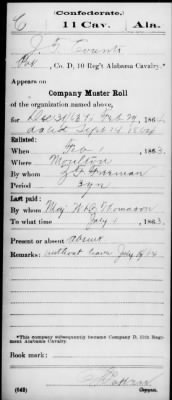 (Confederate.)
C 11 Cav. Ala.
Co. D, 10 Reg't Alabama Cavalry.*
Appears on
Company Muster Roll
of the organization named above,
for Dec 31/63 to Feb 29, 1864
Enlisted:
When 1863.
Where Moulton
By whom
Period 3 yrs
Last paid:
By whom Maj W H Thomason
To what time July 1, 1863.
Present or absent absent
Remarks: without leave July
*This company subsequently became Company D, 11th Regiment Alabama Cavalry.
Book mark:
(642) Copyist.